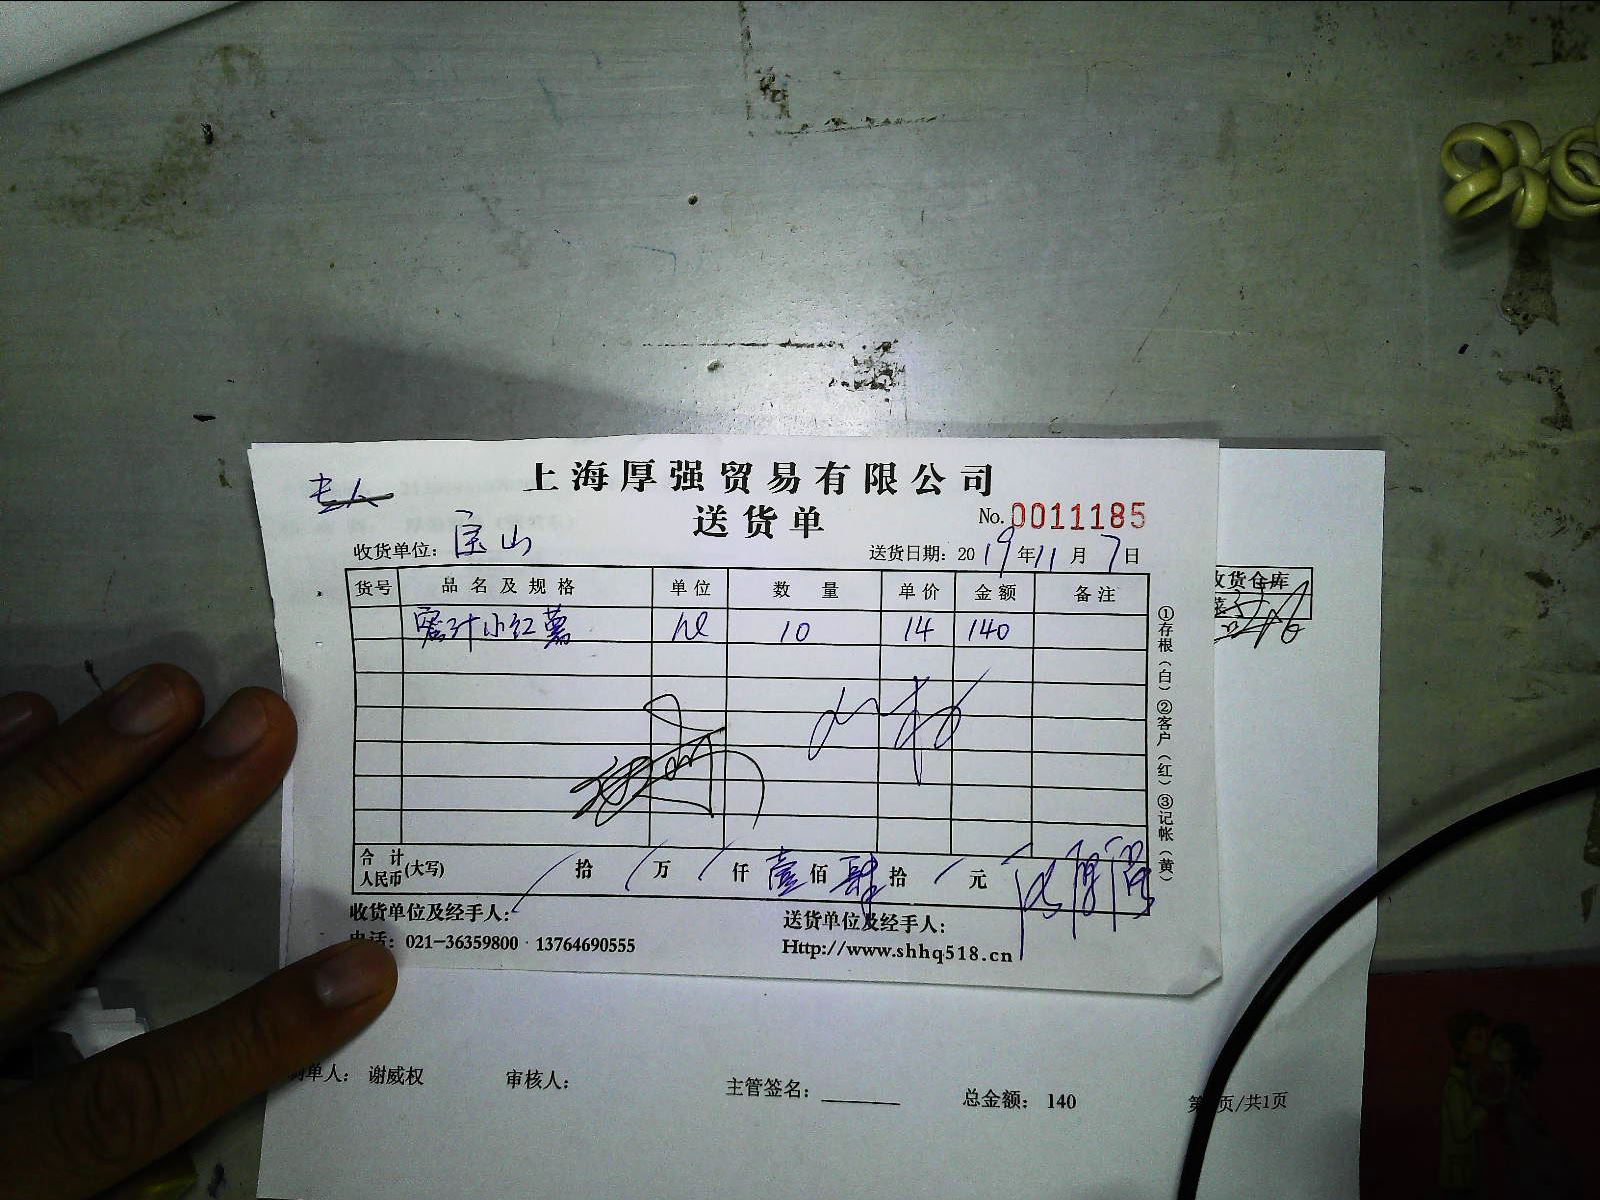 上海厚强贸易有限公司
送货单
No. 0011185
收货单位: 宝山
送货日期: 2019年11月7日
货号 品名及规格 单位 数量 单价 金额 备注
蜜汁小红薯 10 14 140
合计人民币(大写) / 拾 / 万 / 仟 壹 佰 肆 拾 / 元
收货单位及经手人:
送货单位及经手人:
电话: 021-36359800 13764690555
Http://www.shhq518.cn
①存根(白)②客户(红)③记帐(黄)
收货仓库
制单人: 谢威权 审核人: 主管签名: 总金额: 140 页/共1页